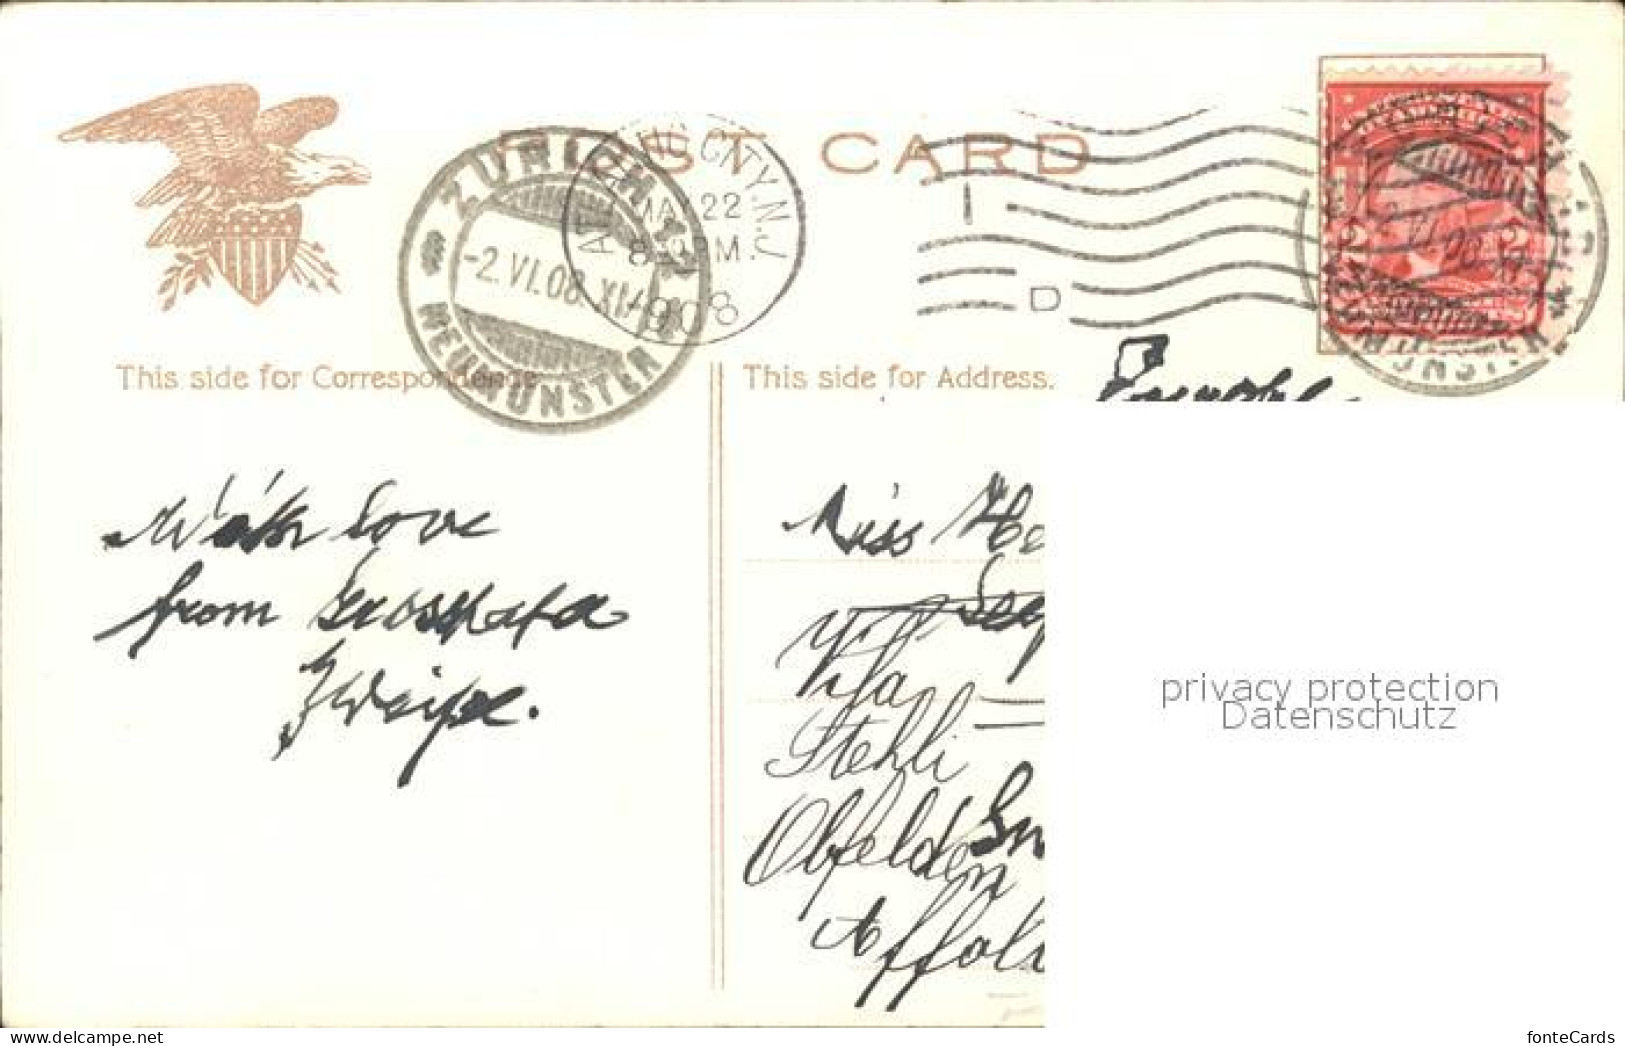 POST CARD
ZÜRICH
-2.VI.08 XI-
NEUMÜNSTER
ATLANTIC CITY, N.J.
MAY 22
8 PM
1908
D
2 2
This side for Correspondence
This side for Address.
With love
from
Miss
Villa
Stehli
Obfelden
Affolt
privacy protection
Datenschutz
www.delcampe.net
fonteCards